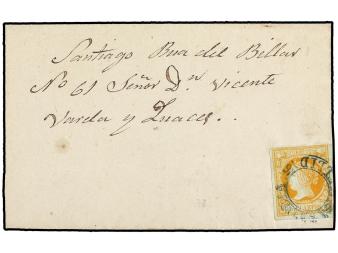 Santiago Rua del Billar
No 61 Señr Dn Vicente
Varela y Luaces..